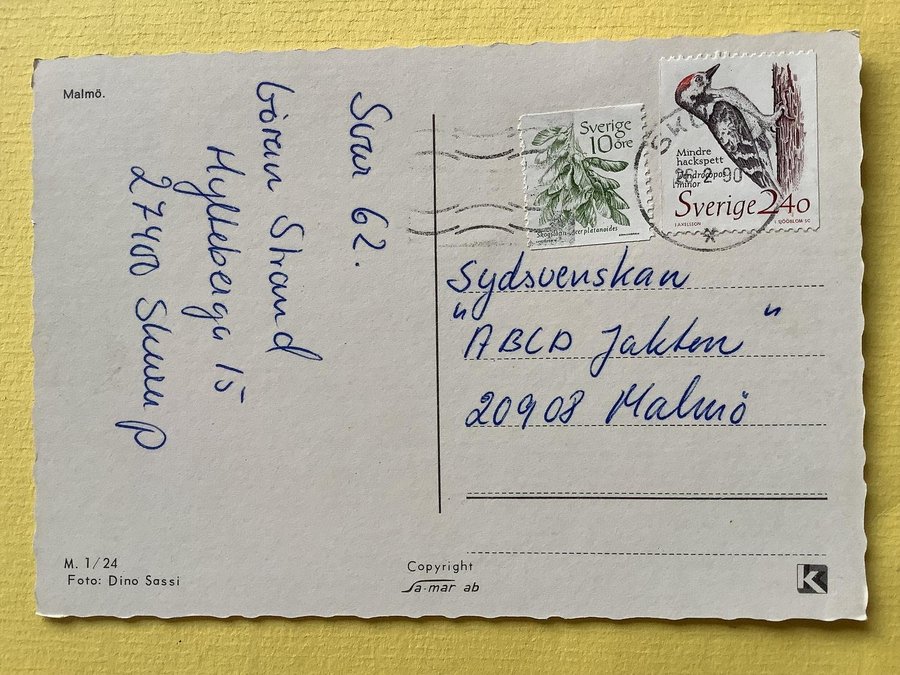 Malmö.
Svar 62.
Göran Strand
Hylteberga 15
27400 Skurup
Sverige
10 öre
Skogslönn-Acer platanoides
SK
26 2 90
Mindre
hackspett
Dendrocopos
minor
Sverige 240
J AXELSSON
L SJÖÖBLOM SC
Sydsvenskan
"ABCD Jakten"
20908 Malmö
M. 1/24
Foto: Dino Sassi
Copyright
sa-mar ab
K